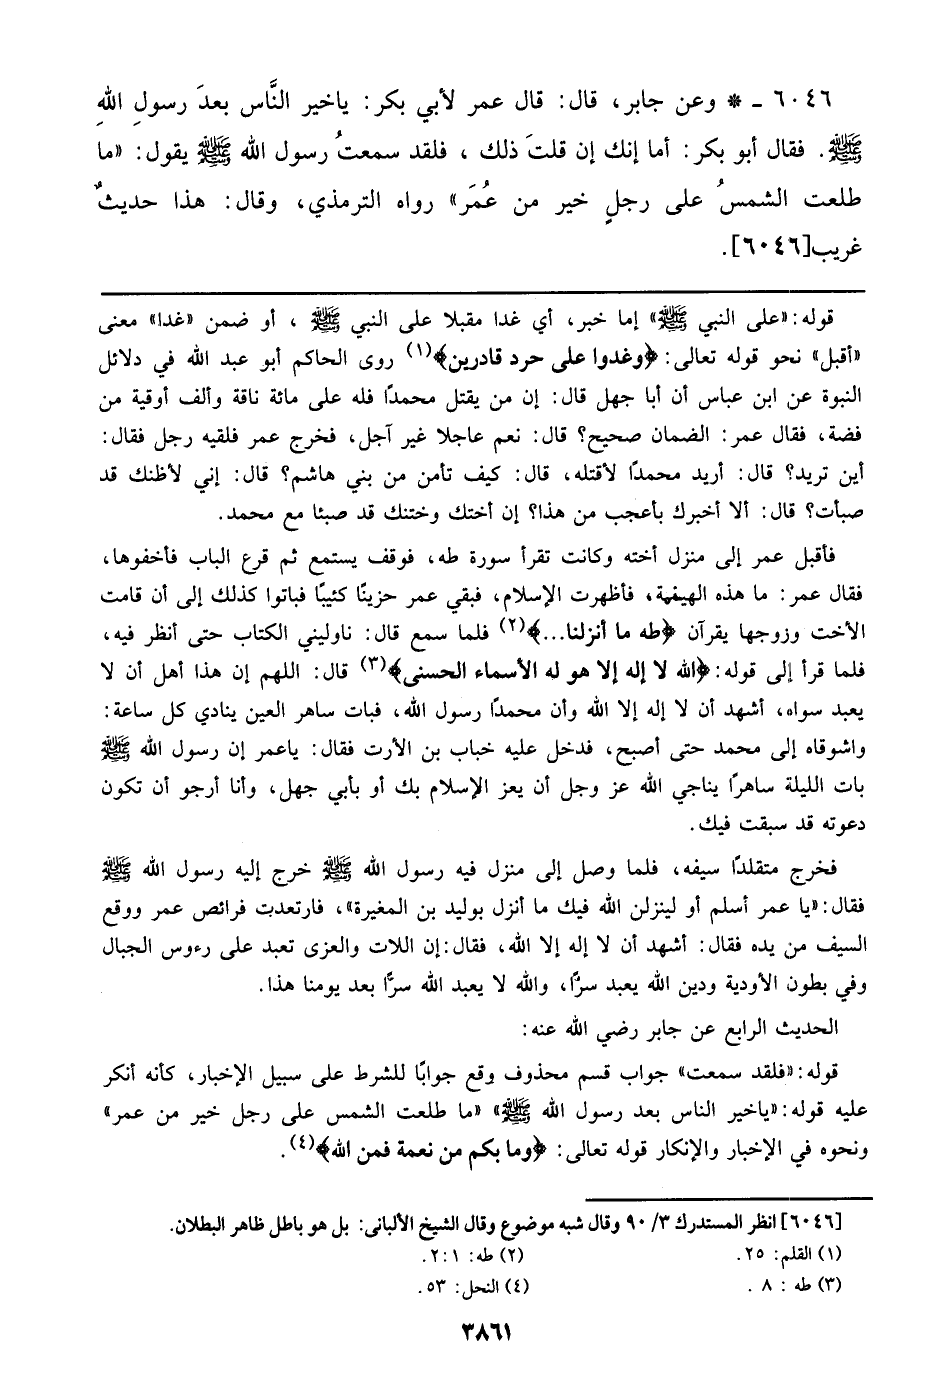 ٦٠٤٦ ـ * وعن جابر، قال: قال عمر لأبي بكر: ياخير النَّاس بعدَ رسولِ اللهِ
ﷺ. فقال أبو بكر: أما إنك إن قلتَ ذلك ، فلقد سمعتُ رسول الله ﷺ يقول: «ما
طلعت الشمسُ على رجلٍ خير من عُمَر» رواه الترمذي، وقال: هذا حديثٌ
غريب[٦٠٤٦].
قوله:«على النبي ﷺ» إما خبر، أي غدا مقبلا على النبي ﷺ ، أو ضمن «غدا» معنى
«أقبل» نحو قوله تعالى: ﴿وغدوا على حرد قادرين﴾(١) روى الحاكم أبو عبد الله في دلائل
النبوة عن ابن عباس أن أبا جهل قال: إن من يقتل محمدًا فله على مائة ناقة وألف أوقية من
فضة، فقال عمر: الضمان صحيح؟ قال: نعم عاجلا غير آجل، فخرج عمر فلقيه رجل فقال:
أين تريد؟ قال: أريد محمدًا لأقتله، قال: كيف تأمن من بني هاشم؟ قال: إني لأظنك قد
صبأت؟ قال: ألا أخبرك بأعجب من هذا؟ إن أختك وختنك قد صبئا مع محمد.
فأقبل عمر إلى منزل أخته وكانت تقرأ سورة طه، فوقف يستمع ثم قرع الباب فأخفوها،
فقال عمر: ما هذه الهيئمة، فأظهرت الإسلام، فبقي عمر حزينًا كئيبًا فباتوا كذلك إلى أن قامت
الأخت وزوجها يقرآن ﴿طه ما أنزلنا...﴾(٢) فلما سمع قال: ناوليني الكتاب حتى أنظر فيه،
فلما قرأ إلى قوله:﴿الله لا إله إلا هو له الأسماء الحسنى﴾(٣) قال: اللهم إن هذا أهل أن لا
يعبد سواه، أشهد أن لا إله إلا الله وأن محمدًا رسول الله، فبات ساهر العين ينادي كل ساعة:
واشوقاه إلى محمد حتى أصبح، فدخل عليه خباب بن الأرت فقال: ياعمر إن رسول الله ﷺ
بات الليلة ساهرًا يناجي الله عز وجل أن يعز الإسلام بك أو بأبي جهل، وأنا أرجو أن تكون
دعوته قد سبقت فيك.
فخرج متقلدًا سيفه، فلما وصل إلى منزل فيه رسول الله ﷺ خرج إليه رسول الله ﷺ
فقال:«يا عمر أسلم أو لينزلن الله فيك ما أنزل بوليد بن المغيرة»، فارتعدت فرائص عمر ووقع
السيف من يده فقال: أشهد أن لا إله إلا الله، فقال:إن اللات والعزى تعبد على رءوس الجبال
وفي بطون الأودية ودين الله يعبد سرًّا، والله لا يعبد الله سرًّا بعد يومنا هذا.
الحديث الرابع عن جابر رضي الله عنه:
قوله:«فلقد سمعت» جواب قسم محذوف وقع جوابًا للشرط على سبيل الإخبار، كأنه أنكر
عليه قوله:«ياخير الناس بعد رسول الله ﷺ» «ما طلعت الشمس على رجل خير من عمر»
ونحوه في الإخبار والإنكار قوله تعالى: ﴿وما بكم من نعمة فمن الله﴾(٤).
[٦٠٤٦] انظر المستدرك ٣/ ٩٠ وقال شبه موضوع وقال الشيخ الألبانى: بل هو باطل ظاهر البطلان.
(١) القلم: ٢٥. (٢) طه: ٢:١.
(٣) طه : ٨ . (٤) النحل: ٥٣.
٣٨٦١